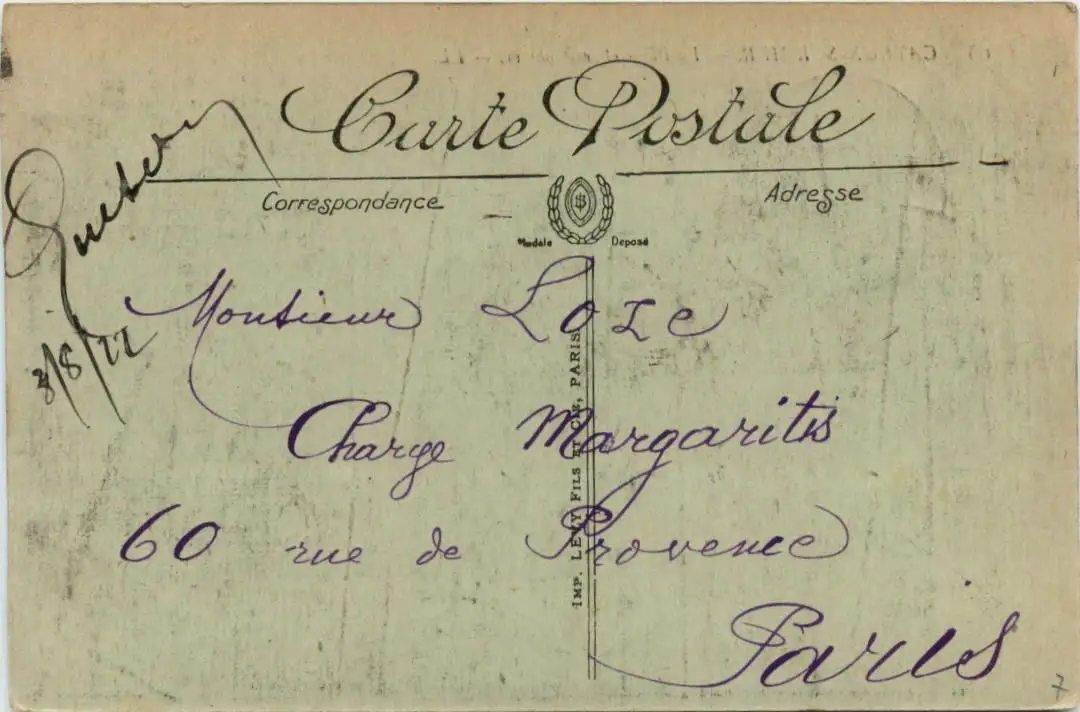 Carte Postale
Correspondance
Adresse
Modèle Déposé
8/8/22
Monsieur Loze
Charge Margaritis
60 rue de Provence
Paris
IMP. LEVY FILS ET CIE, PARIS
7